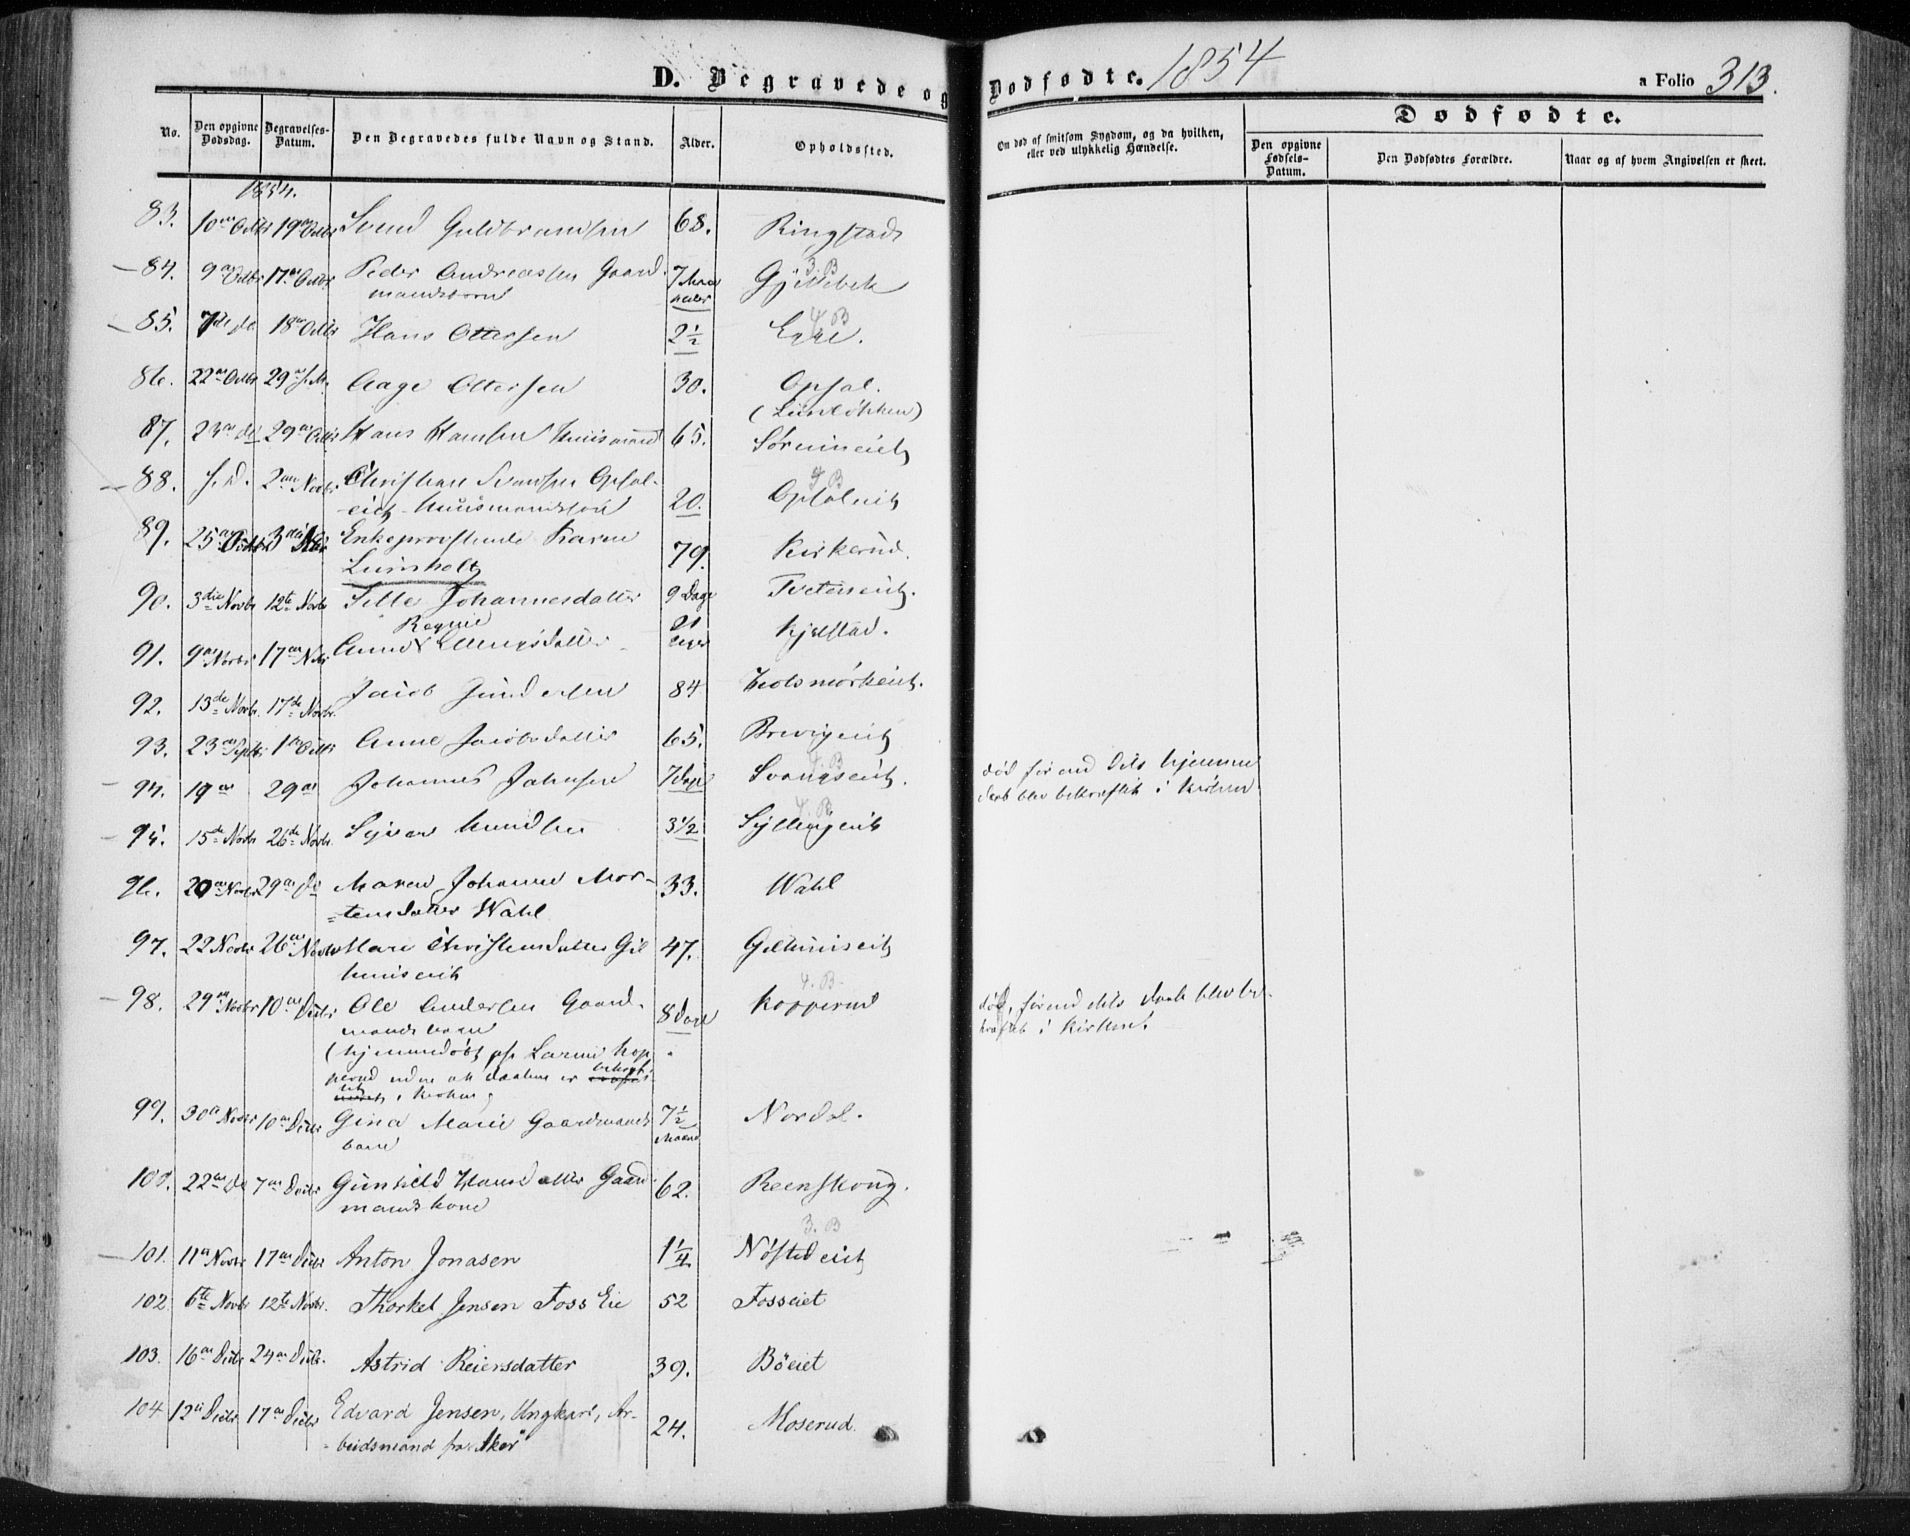 D. Begravede og Dødfødte. 1854
a Folio 313.
No.
Den opgivne Dødsdag.
Begravelses-Datum.
Den Begravedes fulde Navn og Stand.
Alder.
Opholdssted.
Om død af smitsom Sygdom, og da hvilken, eller ved ulykkelig Hændelse.
Dødfødte.
Den opgivne Fødsels-Datum.
Den Dødfødtes Forældre.
Naar og af hvem Angivelsen er skeet.
1854.
83. 10de Octbr 19de Octbr Svend Guldbrandsen 68. Ringstad
3. B
84. 9de Octbr 17de Octbr Peder Andreassen Gaard-
mandsbarn 7 Maaneder Gjellebek
4 B
85. 7de do 18de Octbr Hans Ottersen 2½
86. 22de Octbr 29de s.M. Aage Ottersen 30. Opsal.
(Lunløkken)
87. 29de Octbr Hans Hansen Huusmand 65.
4 B
88. s.D. 2den Novbr Christian Svensen Opsal-
eiet Huusmandssøn 20. Opsaleiet
89. 25de Octbr 3die Nbr Enkeprovstinde Karen
Lumholtz 79. Kirkerud.
90. 3die Novbr 12te Novbr Johannesdatter 9 Dage Tveterseiet.
Ragne
91. 9de Novbr 17de Nbr Anne Ellingsdatter Kjelstad.
92. 13de Novbr. 17de Novbr. Jacob Gundersen 84
93. 23de Septbr 1ste Octbr Anne Jacobsdatter 65. Brevigeiet
4. B
94. 19de 29de Johannes Johnsen 7 Dage Svangseiet. død før end dets hjemme
daab blev bekræftet i Kirken
4. B
95. 15de Novbr 26de Novbr. Syver Knudsen 3½ Syllingeiet
96. 20de Novbr 29de do Maren Johanne Mor-
tensdatter Wahl 33. Wahl
97. 22 Novbr 26de Novbr Mari Christensdatter Gil
huuseiet 47. Gilhuuseiet
4. B.
98. 29de Novbr 10de Decbr Ole Andersen Gaard-
mandsbarn 8 Dage Kopperud død, før end dets daab blev be-
kræftet i Kirken.
(hjemmedøbt af Larine Kop
perud uden at daaben er bekræf
tet i Kirken)
99. 30te Novbr 10de Decbr Gina Marie Gaardmands
barn 7½ Maaned Nordal.
100. 22de do 7de Decbr Gunhild Hansdatter Gaard
mandskone 62. Reenskoug.
3. B
101. 11te Novbr 17de Decbr Anton Jonasen 1¼ Nøstedeiet
102 6te Novbr 12te Novbr. Thorkel Jensen Foss Eie 52 Fosseiet
103. 16de Decbr 24de Decbr. Astrid Reiersdatter 39. Böeiet
104 12te Decbr 17de Decbr Edvard Jensen, Ungkarl, Ar-
beidsmand fra Aker 24. Moserud.